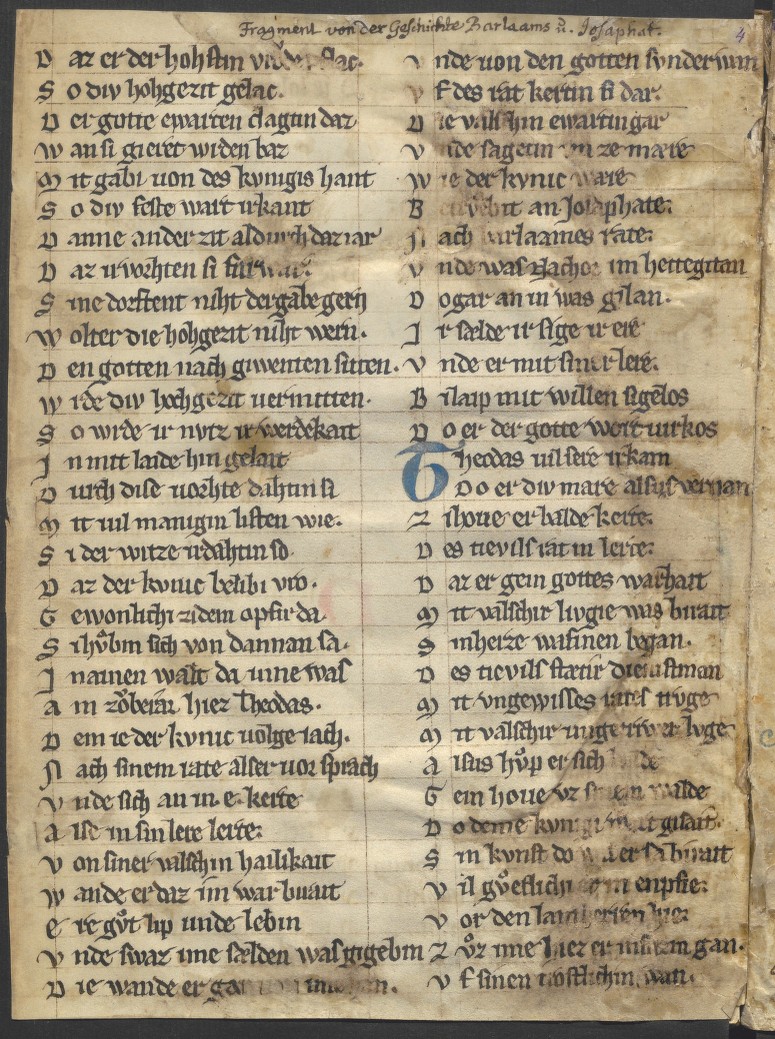 Fragment von der Geschichte Barlaams u. Josaphat.
4
D az er der hohsten
S o div hohgezit gelac.
D er gotte ewarten clagtin daz
W an si gieret wrden baz
M it gabi uon des kvnigis hant
S o div feste wart irkant
D anne ander zit aldurch daz iar
D az irvorhten si
S ine dorftent niht der gabe gern
W olter die hohgezit niht wern.
D en gotten nach giwenten sitten.
W rde div hochgezit uermitten.
S o wrde ir nvtz ir werdekait
I n mit laide hin gelait
D urch dise uorhte dahtin si
M it uil manigin listen wie.
S i der witze irdahtin so
D az der kvnic belibi vro.
G ewonlichi zidem opfir da
S i hůbin sich von dannan sa.
I nainen walt da inne was
A in zǒberar hiez Theodas.
D em ie der kvnic uolge iach.
N ach sinem rate alser uor sprach
V nde sich an in e kerte
A lse in sin lere lerte.
V on siner valschin hailikait
W ande er daz im war buait
E re gůt lip unde lebin
V nde swaz ime sælden was gigebin
D ie wande er
V nde uon den gotten svnder wan
V f des rat kertin si dar.
D ie valschin ewartin gar
V nde sagetin im ze mære
W ie der kvnic wære
B an Josaphate.
N ach Barlaames rate.
V nde was Nachor im hette gitan
D o gar an in was gilan.
I r sælde ir sige ir ere
V nde er mit siner lere.
B ilaip mit willen sigelos
D o er der gotte wort uirkos
Theodas uil sere irkam
D o er div mare alsus vernan
Z i houe er balde kerte.
D es tievils rat in lerte.
D az er gein gottes warhait
M it valschir livgie was birait
S in herze wafinen began.
D es tievils stætir dienistman
M it vngewisses rates trvge
M it valschir ungetriwer lvge
A lsus hǔp er sich balde
G ein houe vz walde
D o deme kvnige wart gisait.
S in kvnst do birait
V il gůetlich enpfie.
V or den hie.
Z ůz ime hiez er gan.
V f sinen wan.